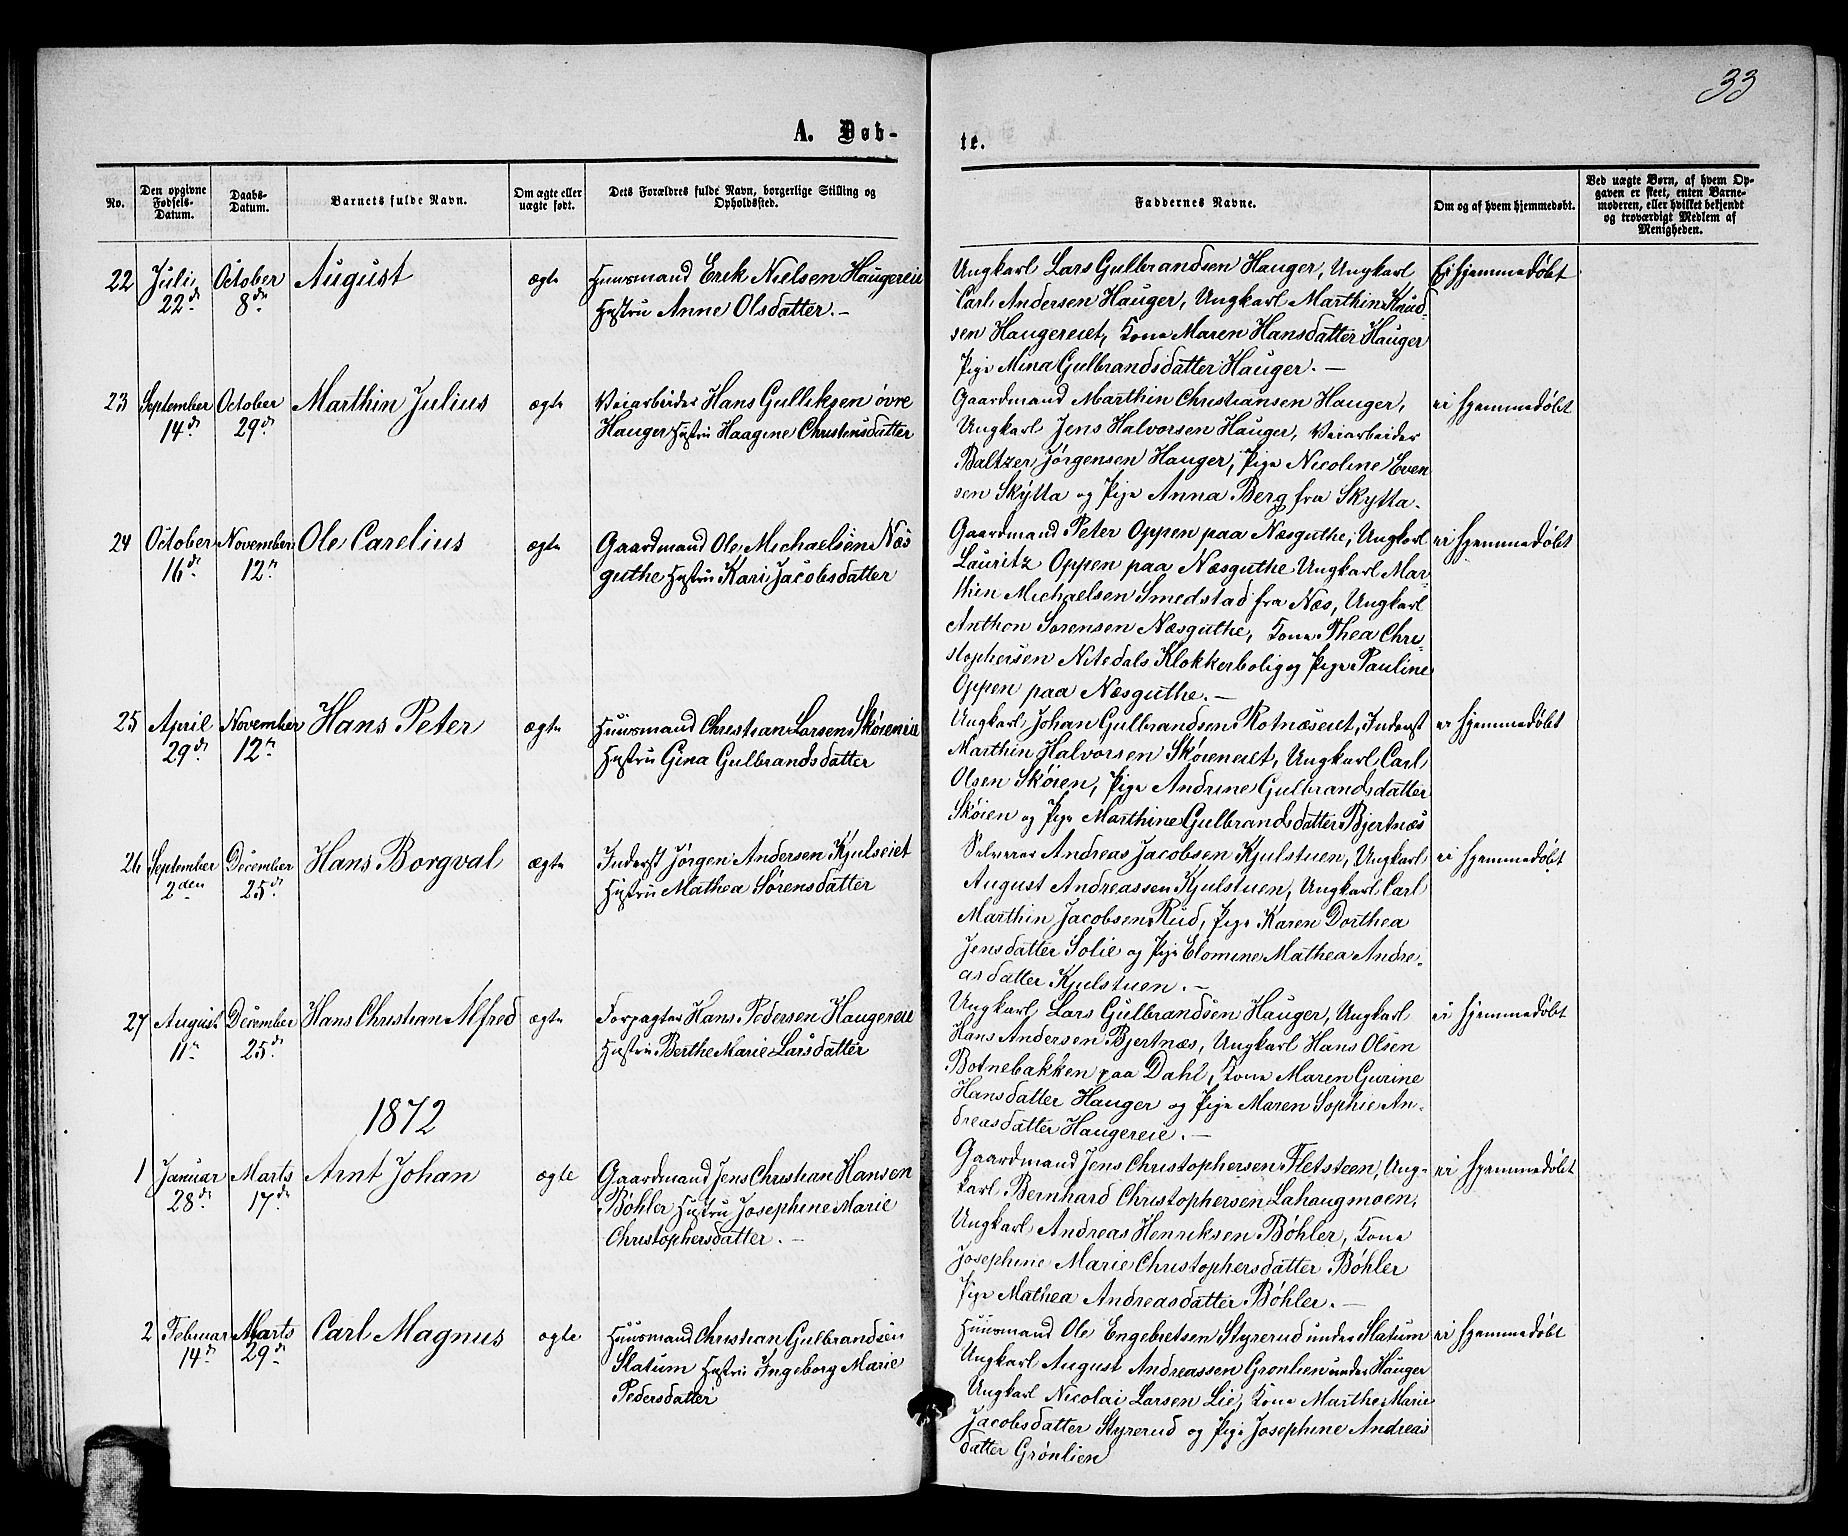 33
A. Døb-
te.
No.
Den opgivne
Fødsels-
Datum.
Daabs-
Datum.
Barnets fulde Navn.
Om ægte eller
uægte født.
Dets Forældres fulde Navn, borgerlige Stilling og
Opholdssted.
Faddernes Navne.
Om og af hvem hjemmedøbt.
Ved uægte Børn, af hvem Op-
gaven er skeet, enten Barne-
moderen, eller hvilket bekjendt
og troværdigt Medlem af
Menigheden.
22
Juli
22de
October
8de
August
ægte
Huusmand Erik Nielsen Haugereie
Hustru Anne Olsdatter.-
Ungkarl Lars Gulbrandsen Hauger, Ungkarl
Carl Andersen Hauger, Ungkarl Marthin Knud-
sen Haugereiet, Kone Maren Hansdatter Hauger
Pige Mina Gulbrandsdatter Hauger.-
Ei hjemmedøbt
23
September
14de
October
29de
Marthin Julius
ægte
Veiarbeider Hans Gulliksen øvre
Hauger Hustru Haagine Christensdatter
Gaardmand Marthin Christiansen Hauger,
Ungkarl Jens Halvorsen Hauger, Veiarbeider
Baltzer Jørgensen Hauger, Pige Nicoline Even
sen Skytta og Pige Anna Berg fra Skytta.
ei hjemmedøbt
24
October
16de
November
12te
Ole Carelius
ægte
Gaardmand Ole Michaelsen Næs
guthe Hustru Kari Jacobsdatter
Gaardmand Peter Oppen paa Næsguthe, Ungkarl
Lauritz Oppen paa Næsguthe Ungkarl Mar-
thin Michaelsen Smedstad fra Næs, Ungkarl
Anthon Sørensen Næsguthe, Kone Thea Chri-
stophersen Nitedals Klokkerbolig og Pige Pauline
Oppen paa Næsguthe.-
ei hjemmedøbt
25
April
29de
November
12te
Hans Peter
ægte
Huusmand Christian Larsen Skøieneie
Hustru Gina Gulbrandsdatter
Ungkarl Johan Gulbrandsen Rotnæseiet, Inderst
Marthin Halvorsen Skøieneiet, Ungkarl Carl
Olsen Skøien, Pige Andrine Gulbrandsdatter
Skøien og Pige Marthine Gulbrandsdatter Bjertnæs
ei hjemmedøbt
26
September
2den
December
25de
Hans Borgval
ægte
Inderst Jørgen Andersen Kjulseiet
Hustru Mathea Sørensdatter
Selveier Andreas Jacobsen Kjulstuen, Ungkarl
August Andreassen Kjulstuen, Ungkarl Carl
Marthin Jacobsen Rud, Pige Karen Dorthea
Jensdatter Solie og Pige Elomine Mathea Andre-
asdatter Kjulstuen.-
ei hjemmedøbt
27
August
11te
December
25de
Hans Christian Alfred
ægte
Forpagter Hans Pedersen Haugereie
Hustru Berthe Marie Larsdatter
Ungkarl Lars Gulbrandsen Hauger, Ungkarl
Hans Andersen Bjertnæs, Ungkarl Hans Olsen
Botnebakken paa Dahl, Kone Maren Gurine
Hansdatter Hauger og Pige Maren Sophie An-
dreasdatter Haugereie.-
ei hjemmedøbt
1872
1
Januar
28de
Marts
17de
Arnt Johan
ægte
Gaardmand Jens Christian Hansen
Bøhler Hustru Josephine Marie
Christophersdatter.-
Gaardmand Jens Christophersen Fletsteen, Ung-
karl Bernhard Christophersen Lahaugmoen,
Ungkarl Andreas Henriksen Bøhler, Kone
Josephine Marie Christophersdatter Bøhler
Pige Mathea Andreasdatter Bøhler.-
ei hjemmedøbt
2
Februar
14de
Marts
29de
Carl Magnus
ægte
Huusmand Christian Gulbrandsen
Slatum Hustru Ingeborg Marie
Pedersdatter
Huusmand Ole Engebretsen Styrerud under Slatum
Ungkarl August Andreassen Grønlien under Hauger
Ungkarl Nicolai Larsen Lie, Kone Marthe Marie
Jacobsdatter Styrerud og Pige Josephine Andreas
datter Grønlien
ei hjemmedøbt